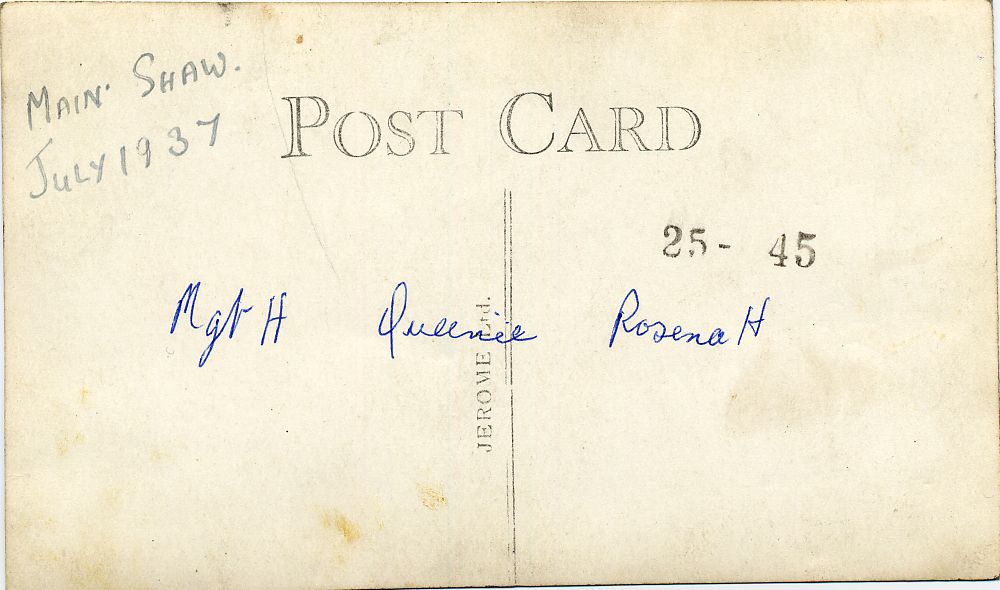 MAIN. SHAW.
JULY 1937
POST CARD
25- 45
Mgt H Queenie Rosena H
JEROME Ltd.